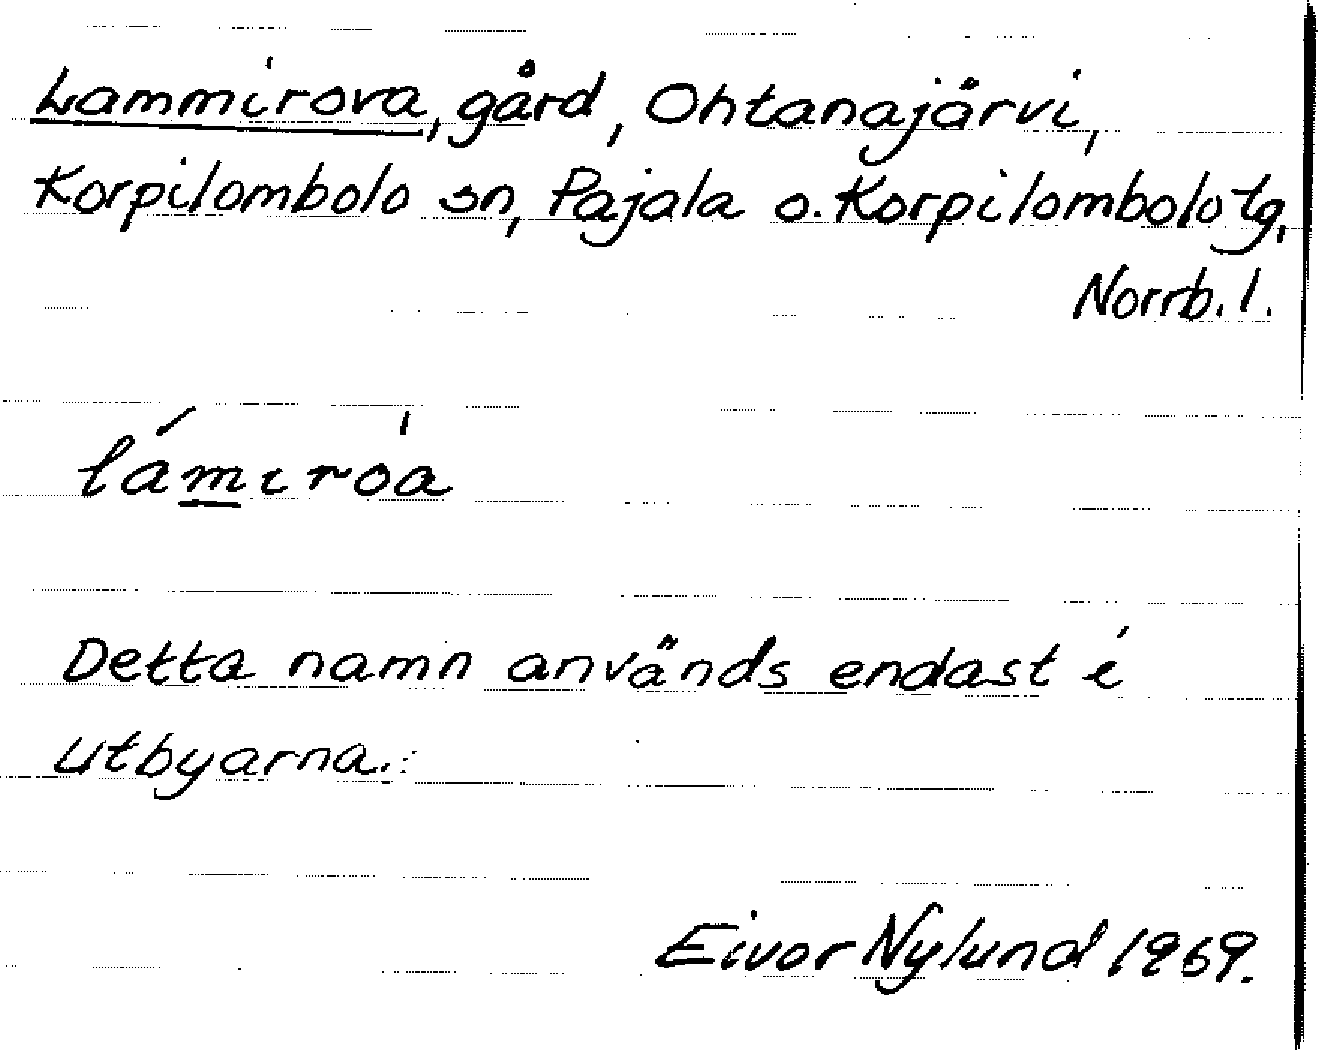 Lammirova, gård, Ohtanajärvi,
Korpilombolo sn, Pajala o. Korpilombolo tg,
Norrb. l.
lámıròa
Detta namn används endast i
utbyarna.
Eivor Nylund 1969.